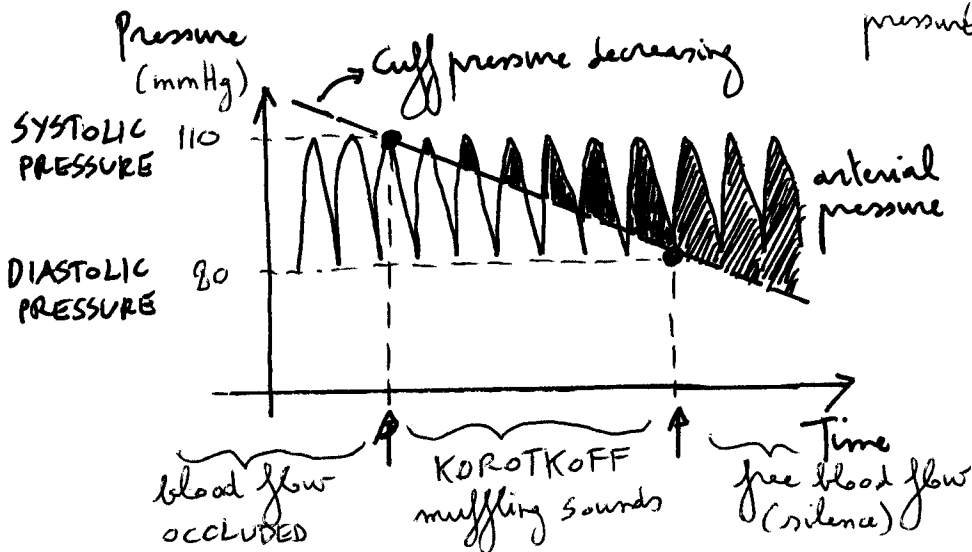 pressure
Pressure
(mmHg)
Cuff pressure decreasing
SYSTOLIC 110
PRESSURE
arterial
pressure
DIASTOLIC 80
PRESSURE
Time
blood flow
OCCLUDED
KOROTKOFF
muffling sounds
free blood flow
(silence)